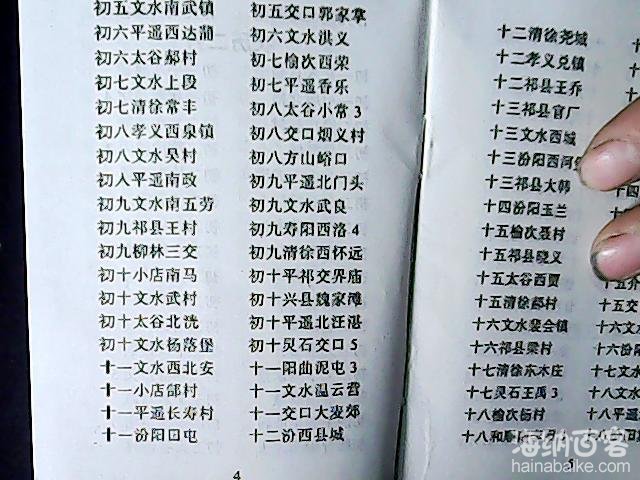 初五文水南武镇
初六平遥西达蒲
初六太谷郝村
初七文水上段
初七清徐常丰
初八孝义西泉镇
初八文水吴村
初八平遥南政
初九文水南五劳
初九祁县王村
初九柳林三交
初十小店南马
初十文水武村
初十太谷北洸
初十文水杨落堡
十一文水西北安
十一小店郜村
十一平遥长寿村
十一汾阳田屯
初五交口郭家掌
初六文水洪义
初七榆次西荣
初七平遥香乐
初八太谷小常3
初八交口烟义村
初八方山峪口
初九平遥北门头
初九文水武良
初九寿阳西洛4
初九清徐西怀远
初十平祁交界庙
初十兴县魏家滩
初十平遥北汪湛
初十灵石交口5
十一阳曲泥屯3
十一文水温云营
十一交口大麦郊
十二汾西县城
4
十二清徐尧城
十二孝义兑镇
十二祁县王乔
十三祁县官厂
十三文水西城
十三汾阳西河
十三祁县大韩
十四汾阳玉兰
十五榆次聂村
十五祁县晓义
十五太谷西贾
十五清徐郝村
十六文水裴会镇
十六祁县梁村
十七清徐东木庄
十七灵石王禹3
十八榆次杨村
十八和顺
5
海纳百客
hainabaike.com